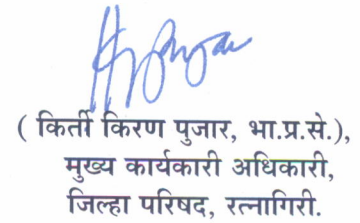 ( किर्ती किरण पुजार, भा.प्र.से.),
मुख्य कार्यकारी अधिकारी,
जिल्हा परिषद, रत्नागिरी.